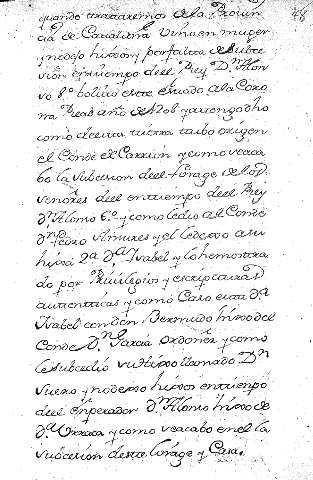 48
quando trataremos de la Provin
cia de Cantabria Vinsen muger
y no dexo hixos y por falta de subce
sion en tiempo de el Rey Dn Alon
so 8º bolvio este estado a la Coro
na Real año de 1206 y tengo dho
como de esta tierra tubo origen
el Conde de Carrion y como se aca
bo la Subcesion de el linage de los
señores de el en tiempo de el Rey
dn Alonso 6º y como le dio al Conde
dn Pedro Ansures y el le dexo a su
hixa 2ª dª Isabel y lo he mostra
do por Privilegios y escripturas
autenticas y como Caso esta dª
Isabel con don Bermudo hixo del
Conde dn Garcia ordoñez y como
le Subcedio su hixo llamado Dn
Suero y no dexo hixos en tiempo
de el enperador dn Alonso hixo de
dª Urraca y como se acabo en el la
subcesion de este linage y Casa.